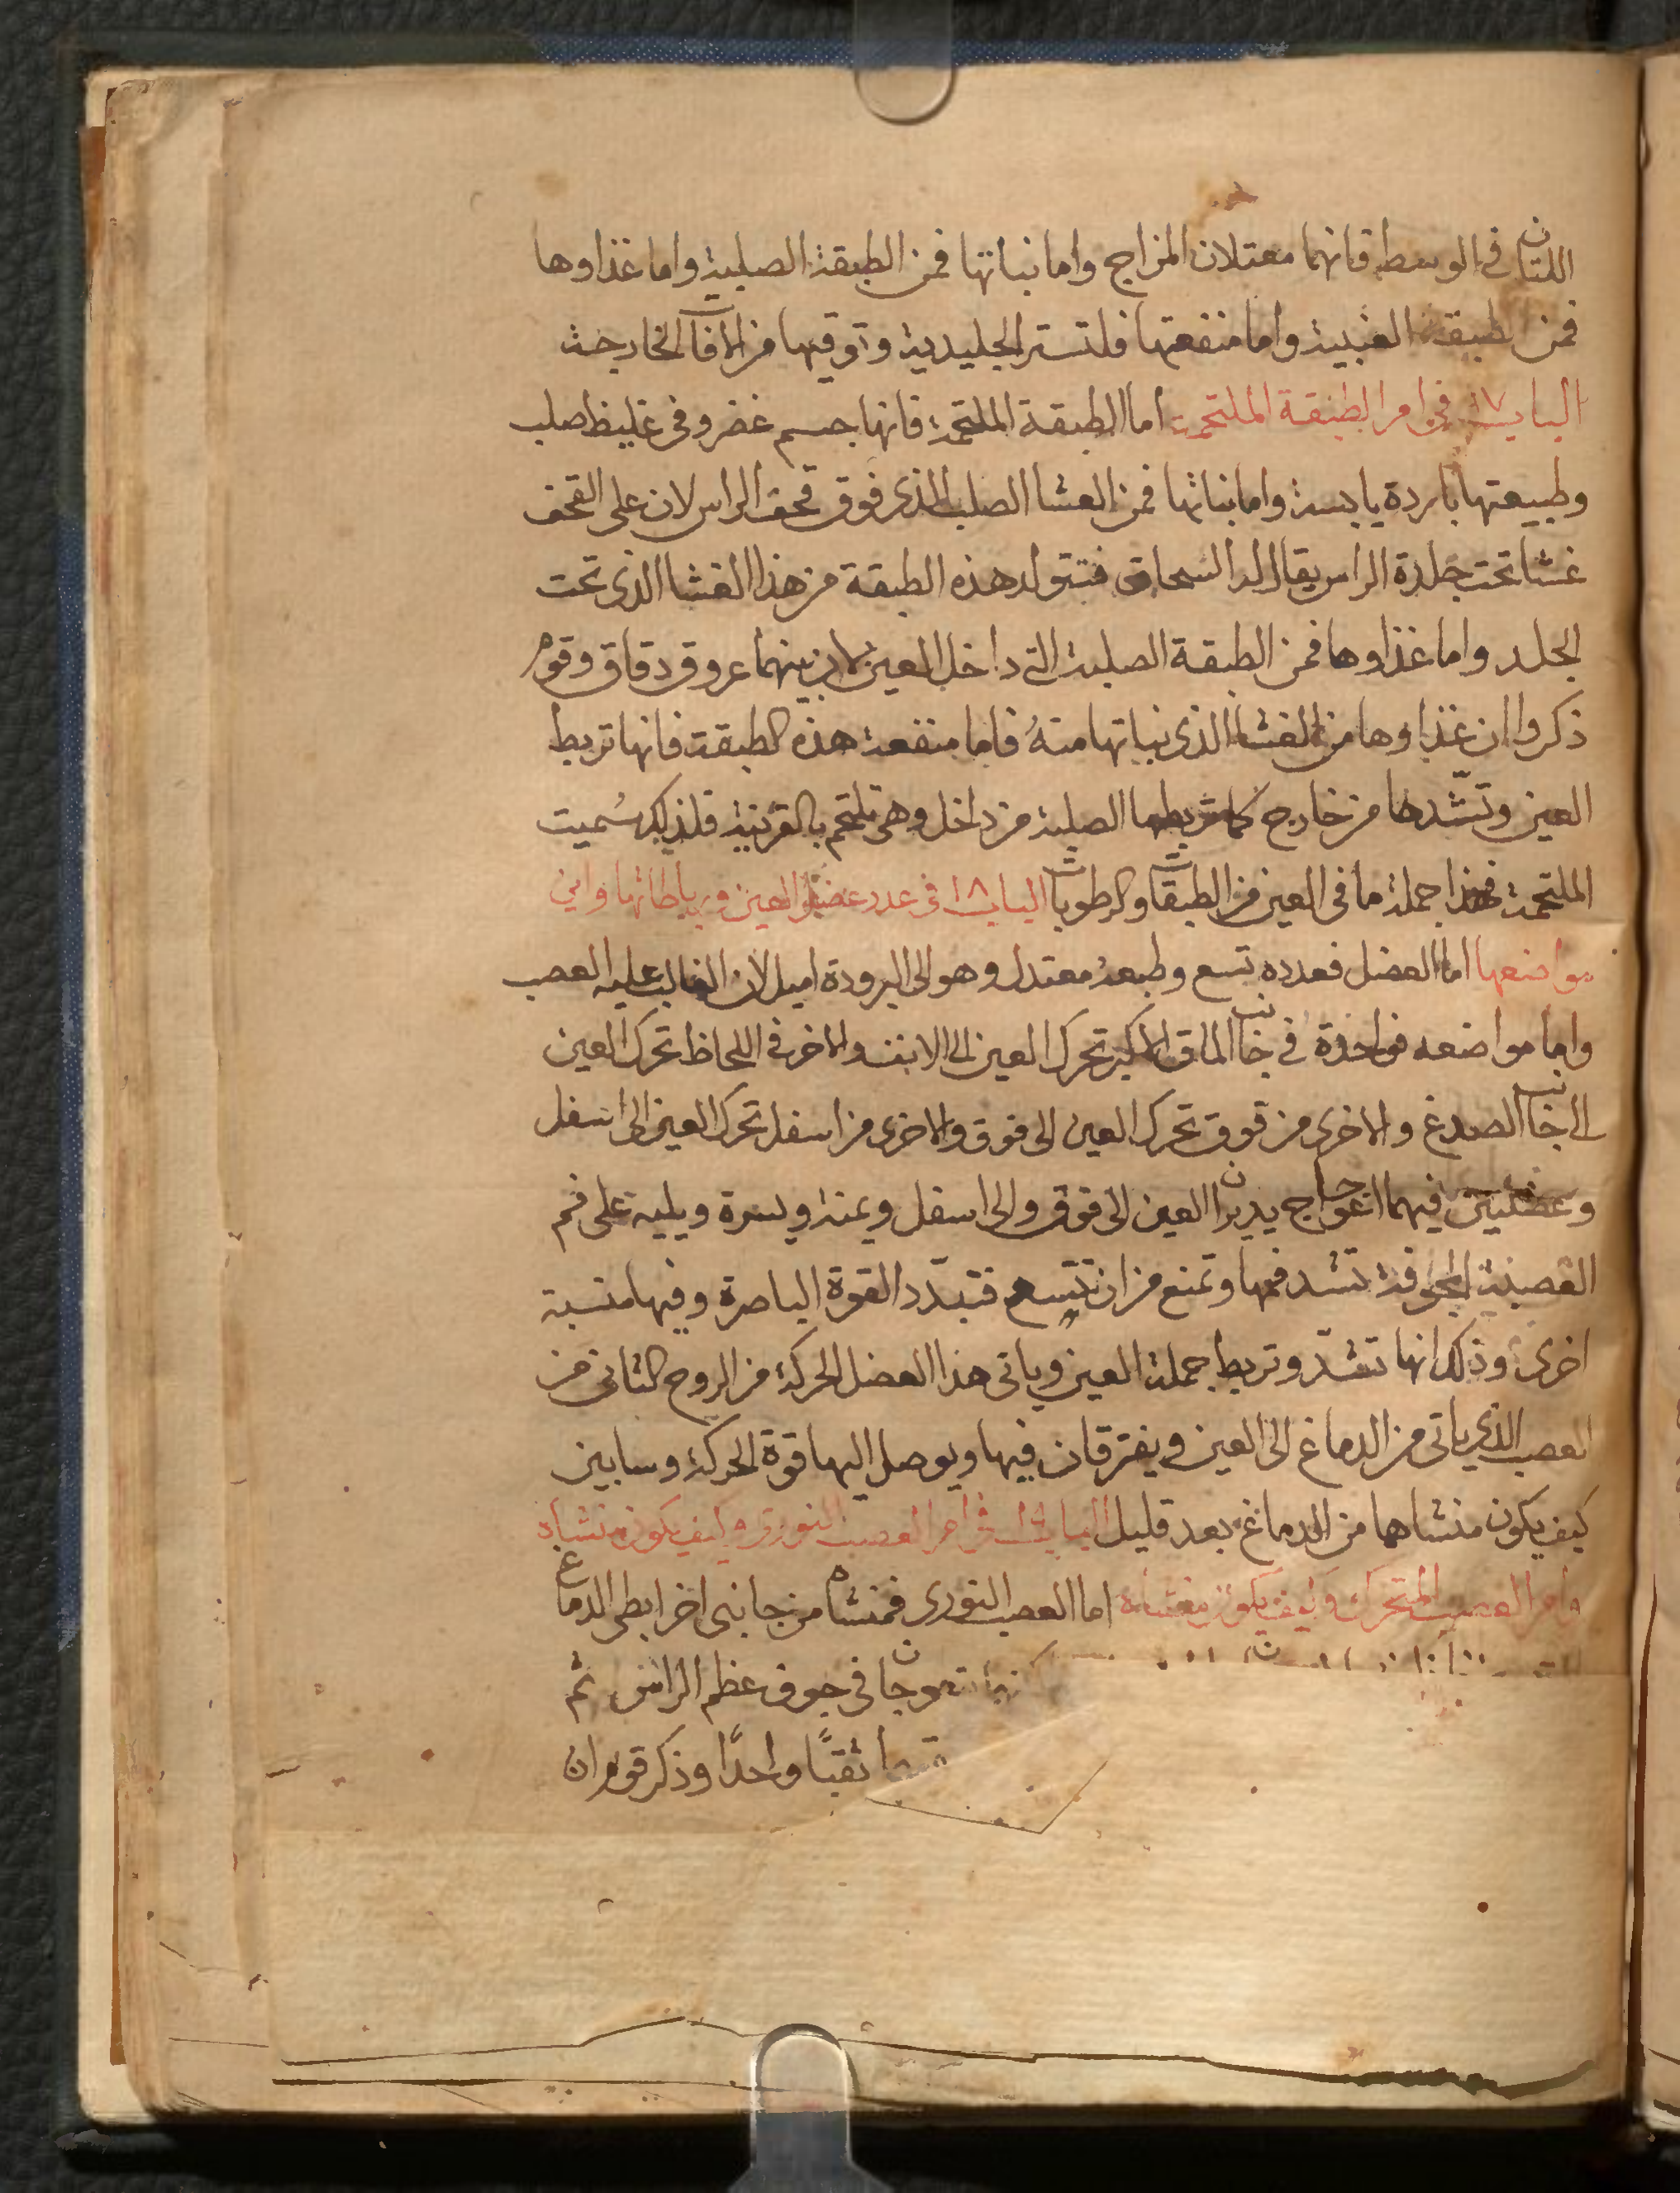 اللتان في الوسط فانهما معتدلان المزاج واما نباتها فمن الطبقة الصلبية واما غذاوها
فمن الطبقة العنبية واما منفعتها فلتستر الجليدية وتوقيها من الافات الخارجة
الباب ١٧ في امر الطبقة الملتحمة اما الطبقة الملتحمة فانها جسم غضروفي غليظ صلب
وطبيعتها باردة يابسة واما نباتها فمن الغشا الصلب الذي فوق قحف الراس لان على القحف
غشا تحت جلدة الراس يقال له السمحاق فتتولد هذه الطبقة من هذا الغشا الذي تحت
الجلد واما غذاوها فمن الطبقة الصلبة التي داخل العين لان بينهما عروق دقاق وقوم
ذكروا ان غذاوها من الغشا الذي نباتها منهُ فاما منفعة هذه الطبقة فانها تربط
العين وتشدها من خارج كما تربطها الصلبة من داخل وهي تلتحم بالقرنية فلذلك سُميت
الملتحمة فهذا جملة ما في العين من الطبقات والرطوبات الباب ١٨ في عدد عضل العين ورباطاتها واين
مواضعها اما العضل فعدده تسع وطبعه معتدل وهو الى البرودة اميل لان الغالب عليه العصب
واما مواضعه فواحدة في جانب الماق الاكبر تحرك العين الى الانف والاخر في اللحاظ تحرك العين
الى جانب الصدغ والاخرى من فوق تحرك العين الى فوق والاخرى من اسفل تحرك العين الى اسفل
وعضلتين فيهما اعوجاج يديران العين الى فوق والى اسفل ويمنة ويسرة ويليه على فم
القصبية المجوفة تشد فمها وتمنع من ان تتسع فتبدّد القوة الباصرة وفيها منسبة
اخرى وذلك انها تشدّ وتربط جملة العين وياتي هذا العضل الحركة من الروح الثاني من
العصب الذي ياتي من الدماغ الى العين ويفترقان فيها ويوصل اليها قوة الحركة وسابين
كيف يكون منشاها من الدماغ بعد قليل الباب ١٩ في امر العصب النوري وكيف يكون منشاه
وامر العصب المتحرك وكيف يكون منشاه اما العصب النوري فمنشاه من جانبي اخر ابطي الدماغ
يتعوجان في جوف عظم الراس ثم
ثقبًا واحدًا وذكر قوم ان